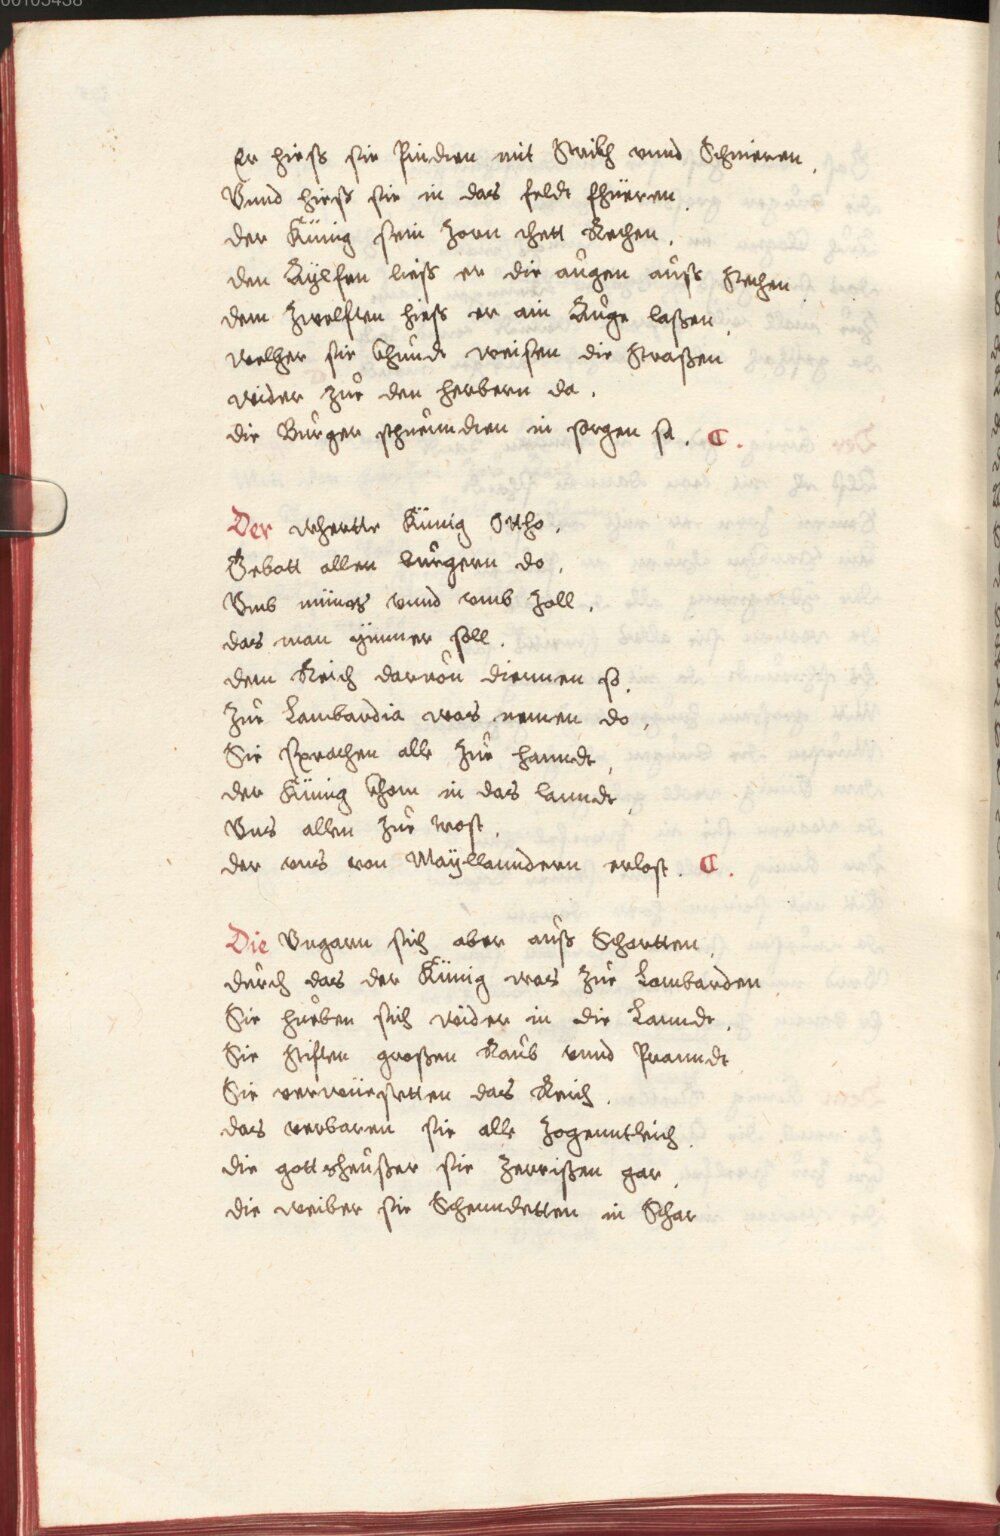 Er hieß sie Pindten mit Strickh vnnd Schnieren.
Vnnd hieß sie in das feldt fhüeren.
der Künig sein Zorn thett Rechen.
den Aÿlfen ließ er die augen auß Stechen
dem Zwelften hieß er ain Auge laßen.
welher sie khundt weisen die Straßen
wider Zue den herbern da.
die Burger stuenndten in sorgen sa. C.
Der wherte Künig Ottho.
Gebott allen burgern do.
Vmb münss vnnd vmb Zoll.
das man ÿmmer soll.
dem Reich daruon diennen so.
Zur Lambardia was nemen do.
Sie sprachen alle Zue hanndt.
der Künig kham in das lanndt.
Vns allen Zue trost.
der vns von Maÿllanndern erlost. C.
Die Vngarn sich aber auß Schartten.
durch das der Künig was Zue Lambarden
Sie hueben sich wider in die Lanndt.
Sie Stiften großen Raub vnnd Pranndt
Sie verwüesstetten das Reich.
das verbaren sie alle Zogenntleich.
die gottsheußer sie Zerrißen gar.
die weiber sie Schenndetten in Schar